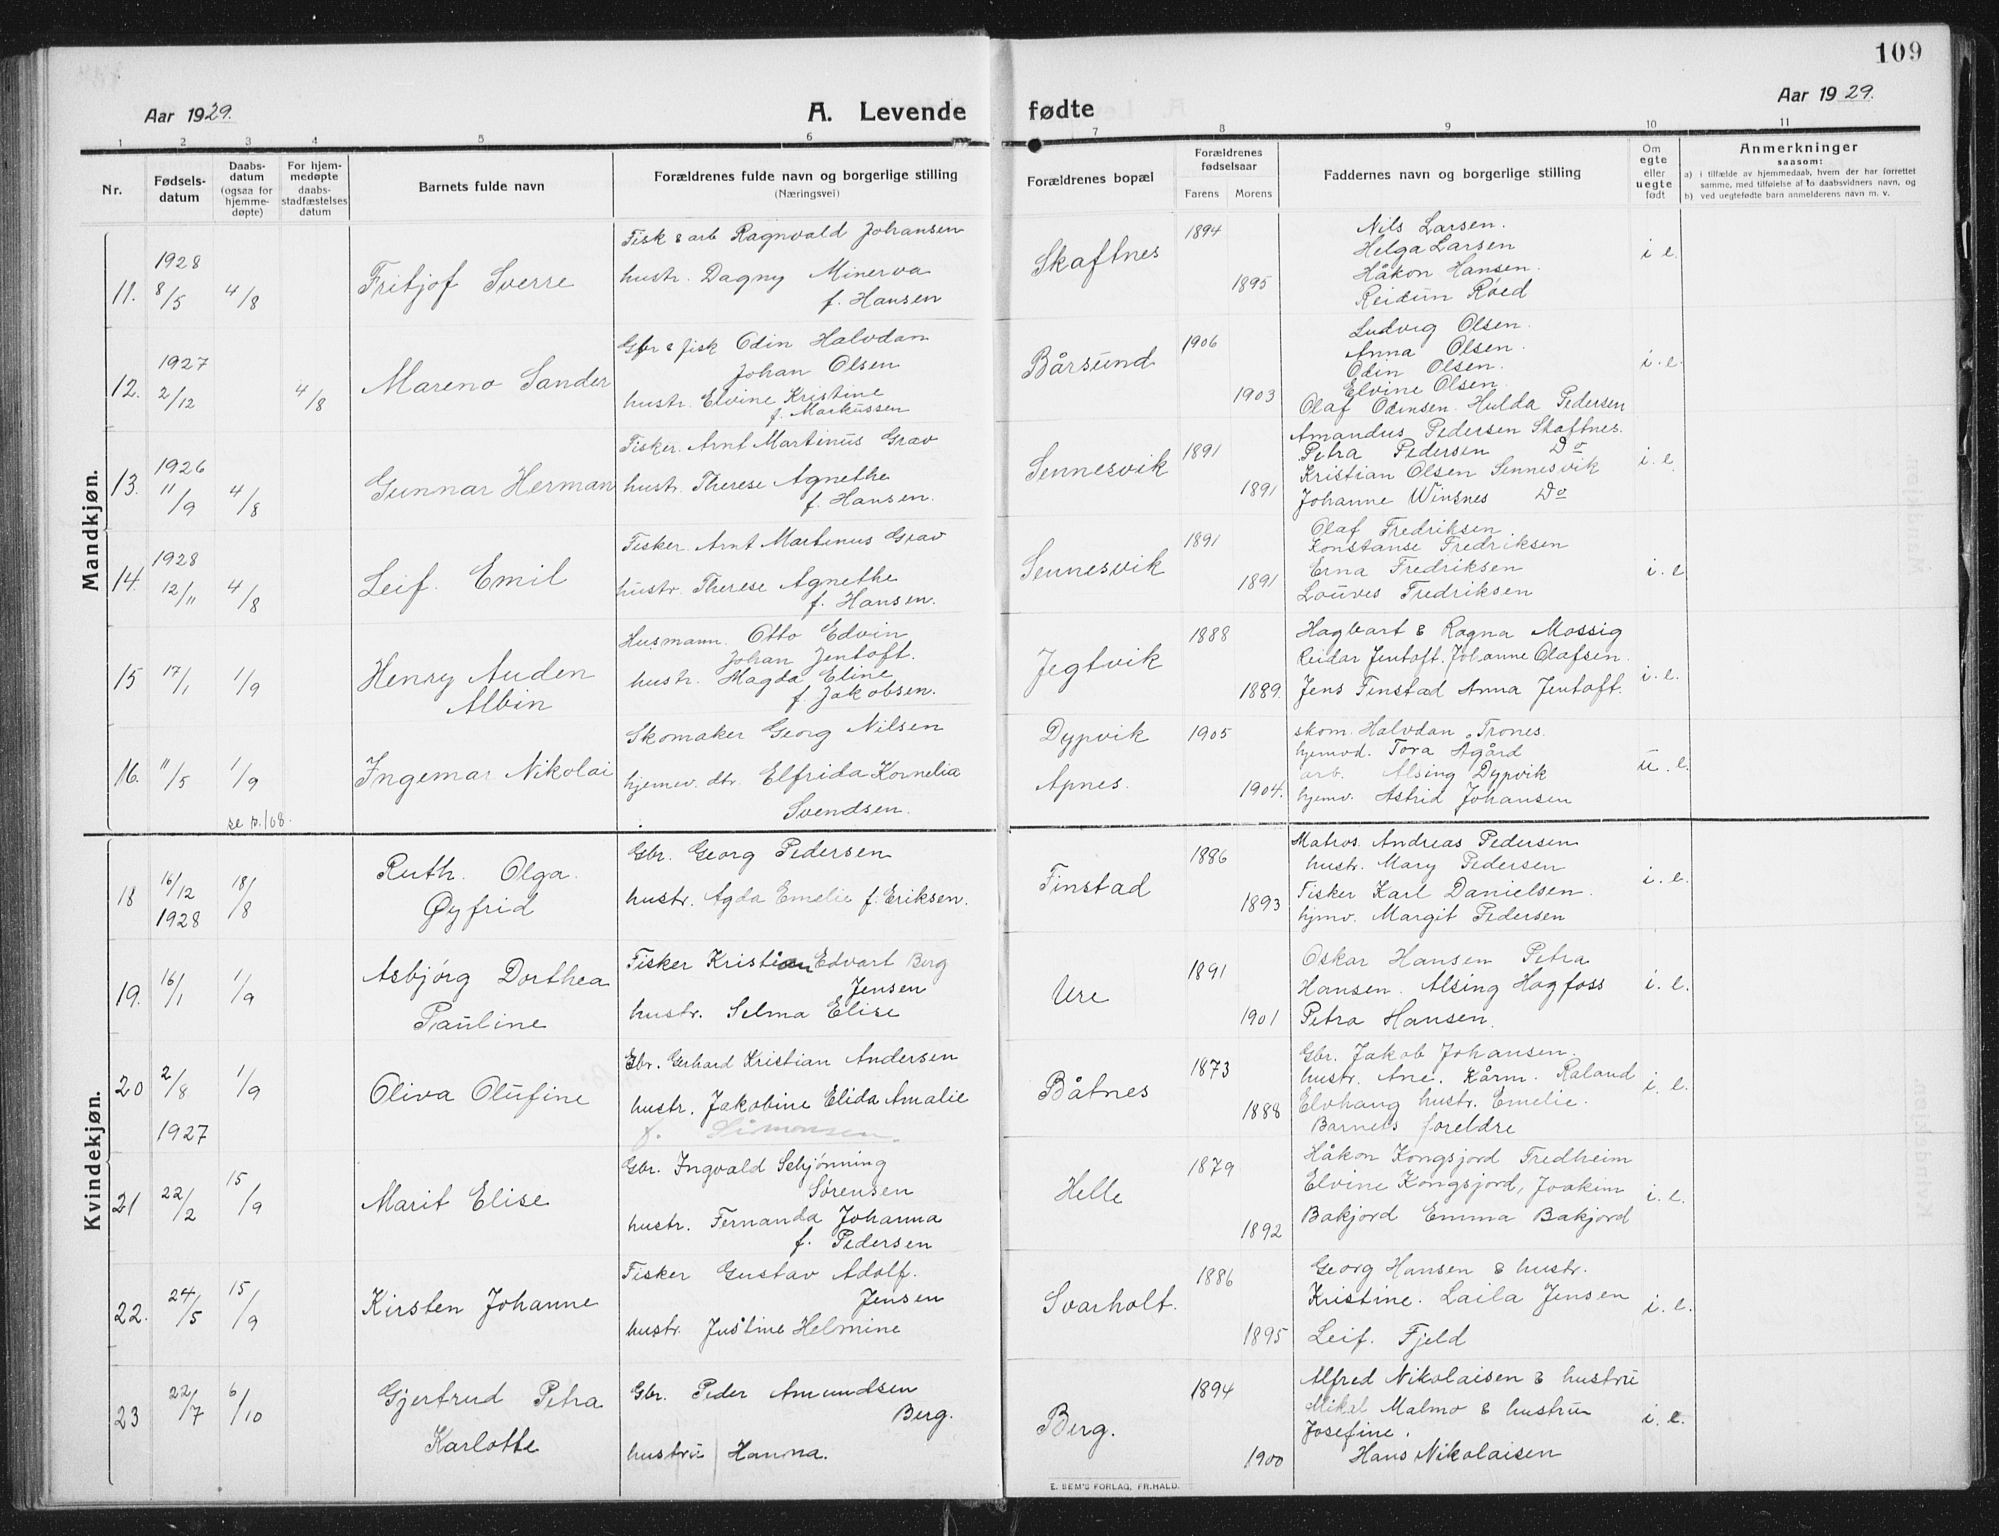 109
Aar 1929.
A. Levende fødte
Aar 1929.
1 2 3 4 5 6 7 8 9 10 11
Nr.
Fødsels-
datum
Daabs-
datum
(ogsaa for
hjemme-
døpte)
For hjem-
medøpte
daabs-
stadfæstelses
datum
Barnets fulde navn
Forældrenes fulde navn og borgerlige stilling
(Næringsvei)
Forældrenes bopæl
Forældrenes
fødselsaar
Farens Morens
Faddernes navn og borgerlige stilling
Om
egte
eller
uegte
født
Anmerkninger
saasom:
a) i tilfælde av hjemmedaab, hvem der har forrettet
samme, med tilføielse af to daabsvidners navn, og
b) ved uegtefødte barn anmelderens navn m. v.
Mandkjøn.
11.
1928
8/5
4/8
Fritjof Sverre
Fisk & arb Ragnvald Johansen
hustr. Dagny Minerva
f. Hansen
Skaftnes
1894
1895
Nils Larsen.
Helga Larsen
Håkon Hansen.
Reidun Røed
i e.
12.
1927
2/12
4/8
Mareno Sander
Gbr & fisk Odin Halvdan
Johan Olsen
hustr. Elvine Kristine
f. Markussen
Bårsund
1906
1903
Ludvig Olsen.
Anna Olsen.
Odin Olsen.
Elvine Olsen.
Olaf Odinsen. Hulda Pedersen
i. e.
13.
1926
11/9
4/8
Gunnar Herman
Fisker. Arnt Martinus Grav
hustr. Therese Agnethe
f. Hansen.
Sennesvik
1891
1891
Amandus Pedersen Skaftnes.
Petra Pedersen Do
Kristian Olsen Sennesvik
Johanne Winsnes Do
i. e.
14.
1928
12/11
4/8
Leif. Emil
Fisker. Arnt Martinus Grav
hustr. Therese Agnethe
f. Hansen.
Sennesvik
1891
1891
Olaf Fredriksen.
Konstanse Fredriksen
Erna Fredriksen
Louves Fredriksen
i. e
15
17/1
1/9
Henry Auden
Albin
Husmann. Otto Edvin
Johan Jentoft.
hustr. Magda Eline
f Jakobsen.
Jegtvik
1888
1889.
Hagbart & Ragna Mossig
Reidar Jentoft. Johanne Olafsen.
Jens Finstad Anna Jentoft.
i. e.
16.
11/5
1/9
se p. 108.
Ingemar Nikolai
Skomaker Georg Nilsen
hjemev. dtr. Elfrida Kornelia
Svendsen.
Dypvik
Apnes.
1905
1904.
skom. Halvdan Trones.
hjemv. Tora Agård
arb. Alsing Dypvik
hjemv. Astrid Johansen
u. e.
Kvindekjøn.
18
16/12
1928
18/8
Ruth. Olga.
Øyfrid
Gbr. Georg Pedersen
hustr. Agda Emelie f. Eriksen.
Finstad
1886
1893
Matros. Andreas Pedersen
hustr. Mary Pedersen
Fisker Karl Danielsen.
hjmv. Margit Pedersen
i. e.
19.
16/1
1/9
Asbjørg Dorthea
Pauline
Fisker Kristian Edvart Berg
Jensen
hustr. Selma Elise
Ure
1891
1901
Oskar Hansen Petra
Hansen. Alsing Hagfoss
Petra Hansen.
i. e.
20
2/8
1927
1/9
Oliva Olufine
Gbr. Gerhard Kristian Andersen
hustr. Jakobine Elida Amalie
f. Simonsen.
Båtnes
1873
1888
Gbr. Jakob Johansen.
hustr. Ane. Kårm. Roland
Elvhaug hustr. Emelie.
Barnets foreldre
i. e.
21
22/2
15/9
Marit Elise
Gbr. Ingvald Schjønning
Sørensen
hustr. Fernanda Johanna
f. Pedersen
Helle
1879
1892
Håkon Kongsjord Fredheim
Elvine Kongsjord, Joakim
Bakjord Emma Bakjord
i. e.
22.
24/5
15/9
Kirsten Johanne
Fisker Gustav Adolf.
Jensen
hustr. Justine Helmine
Svarholt.
1886
1895
Georg Hansen & hustr.
Kristine. Laila Jensen
Leif. Fjeld
i. e.
23
22/7
6/10
Gjertrud Petra
Karlotte
Gbr. Peder Amundsen
Berg.
hustru Hanna.
Berg.
1894
1900
Alfred Nikolaisen & hustru
Mikal Malmo & hustru
Josefine.
Hans Nikolaisen
i. e.
E. SEM'S FORLAG, FR.HALD.